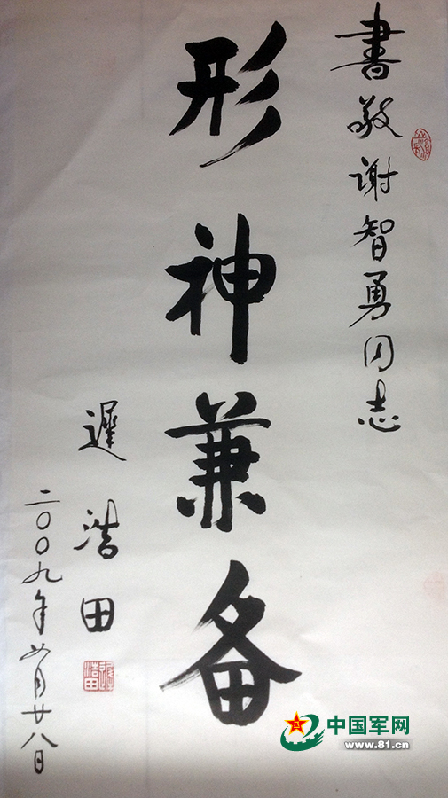 書敬谢智勇同志
形神兼备
遲浩田
二〇〇九年月廿八日
中国军网
www.81.cn